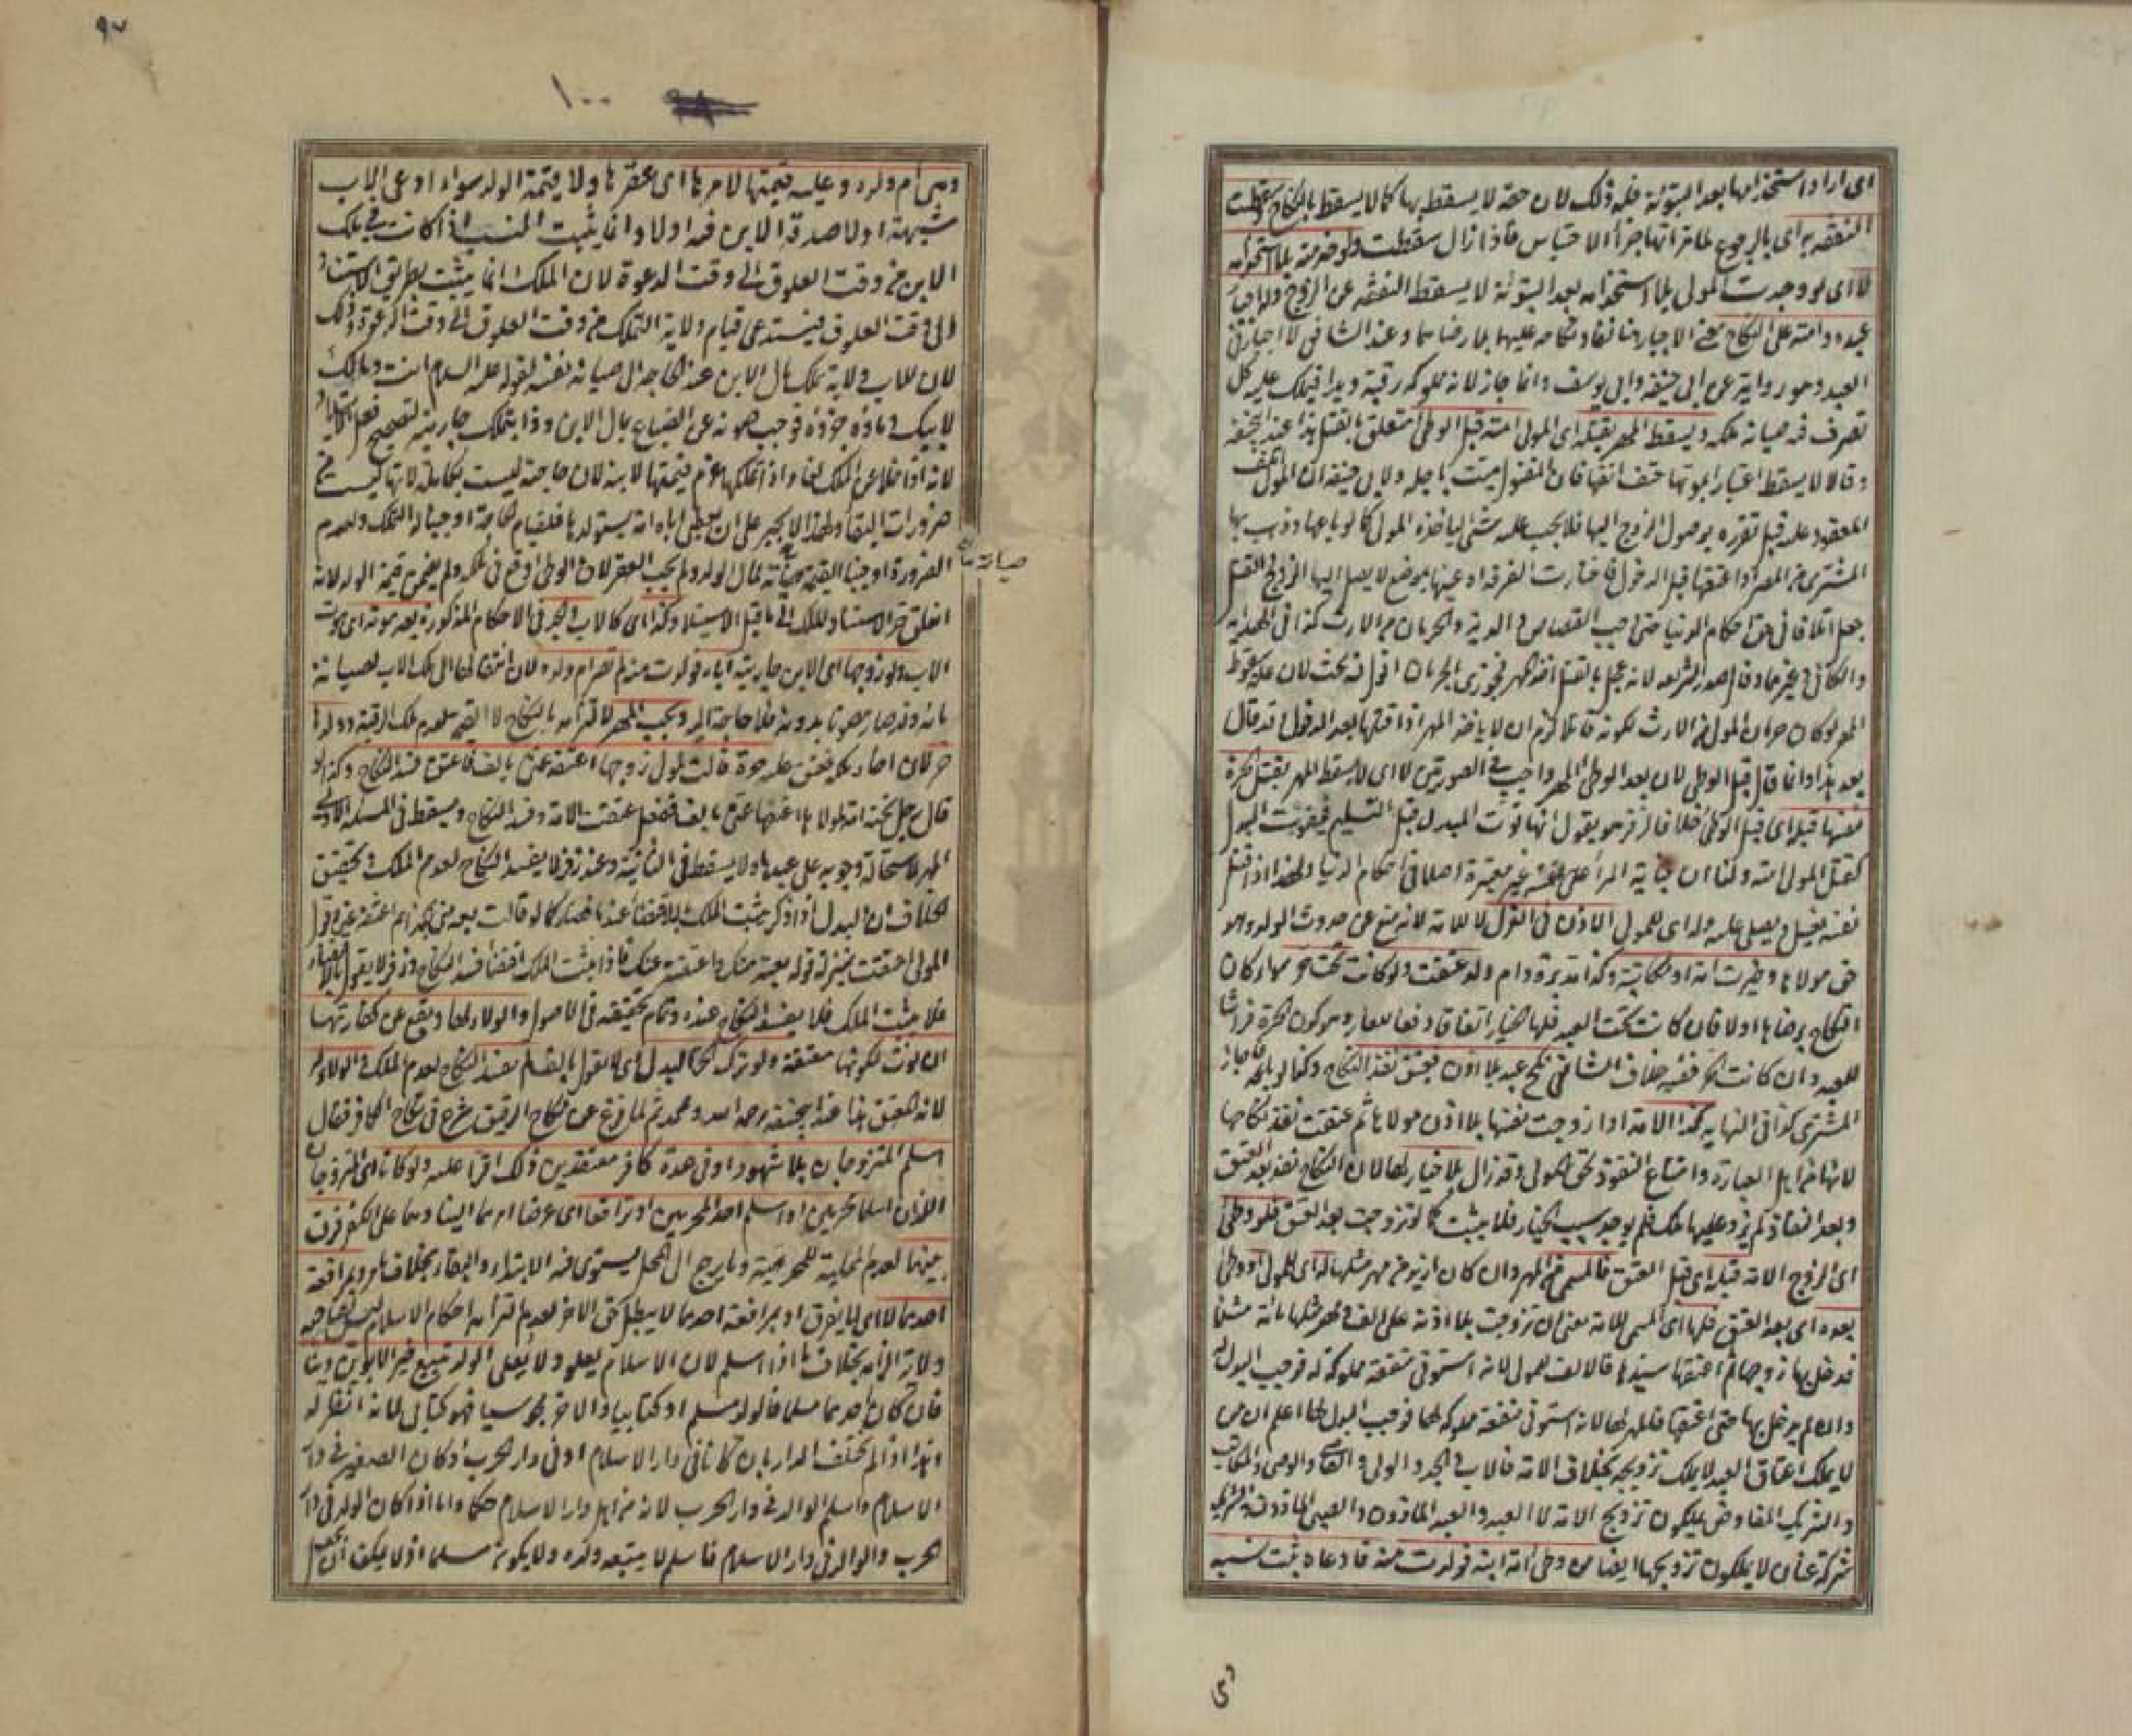 اى اراد استخدامها بعد التبوئة فله ذلك لان حقه لا يسقط بها كما لا يسقط بالنكاح وسقطت
النفقة به اى بالرجوع لما مر انها جزاء الاحتباس فاذا زال سقطت ولو خدمته بلا استخدامه
لا اى لو وجدت المولى بلا استخدامه بعد التبوئة لا يسقط النفقة عن الزوج وله اجبار
عبده وامته على النكاح معنى الاجبار هنا نفاذ نكاحه عليهما بلا رضاهما وعند الشافعى لا اجبار فى
العبد وهو رواية عن ابى حنيفة وابى يوسف وانما جاز لانه مملوكه رقبة ويدا فيملك عليه كل
تصرف فيه صيانة ملكه ويسقط المهر بقتله اى المولى امته قبل الوطى متعلق بالقتل هذا عند ابى حنيفة
وقالا لا يسقط اعتبارا بموتها حتف انفها فان المقتول ميت باجله ولابى حنيفة ان المولى اتلف
المعقود عليه قبل تقرره بوصول الزوج اليها فلا يجب عليه شئ لياخذه المولى كما لو باعها وذهب بها
المشترى من المصر او اعتقها قبل الدخول فاختارت الفرقة او غيبها بموضع لا يصل اليها الزوج والقتل
جعل اتلافا فى حق احكام الدنيا حتى وجب القصاص والدية والحرمان من الارث كذا فى الهداية
والكافى وغيرهما وقال صدر الشريعة لانه عجل بالقتل اخذ المهر فجوزى بالحرمان اقول فيه بحث لان علة سقوط
المهر لو كان حرمان المولى من الارث لكونه قاتلا لزم ان لا ياخذ المهر اذا قتلها بعد الدخول قد قال
بعد هذا وانما قال قبل الوطى لان بعد الوطى المهر واجب فى الصورتين لا اى لا يسقط المهر بقتل الحرة
نفسها قبله اى قبل الوطى خلافا لزفر هو يقول انها فوتت المبدل قبل التسليم فيفوت البدل
كقتل المولى امته ولنا ان جناية المرء على نفسه غير معتبرة اصلا فى احكام الدنيا ولهذا اذا قتل
نفسه يغسل ويصلى عليه وله اى للمولى الاذن فى العزل لا للامة لانه منع عن حدوث الولد وهو
حق مولاها وخيرت امة او مكاتبة وكذا مدبرة وام ولد عتقت ولو كانت تحت حر سواء كان
النكاح برضاها اولا فان كانت تحت العبد فلها الخيار اتفاقا دفعا للعار وهو كون الحرة فراشا
للعبد وان كانت تحت الحر ففيه خلاف الشافعى نكح عبد بلا اذن فعتق نفذ النكاح وكذا لو باعه فاجاز
المشترى كذا فى النهاية كذا الامة اذا زوجت نفسها بلا اذن مولاها ثم عتقت نفذ نكاحها
لانها من اهل العبارة وامتناع النفوذ لحق المولى وقد زال بلا خيار لها لان النكاح نفذ بعد العتق
وبعد النفاذ لم يزد عليها ملك فلم يوجد سبب الخيار فلا يثبت كما لو تزوجت بعد العتق فلو وطئ
اى الزوج الامة قبله اى قبل العتق فالمسمى من المهر وان كان ازيد من مهر مثلها له اى للمولى او وطئ
بعده اى بعد العتق فلها اى المسمى للامة يعنى ان تزوجت بلا اذنه على الف ومهر مثلها مائة مثلا
فدخل بها زوجها ثم اعتقها سيدها فالالف للمولى لانه استوفى منفعة مملوكة له فوجب البدل له
وان لم يدخل بها حتى اعتقها فالمهر لها لانه استوفى منفعة مملوكة لها فوجب البدل لها اعلم ان من
لا يملك اعتاق العبد لا يملك تزويجه بخلاف الامة فالاب والجد والولى والقاضى والوصى والمكاتب
والشريك المفاوض يملكون تزويج الامة لا العبد والعبد الماذون والصبى الماذون والشريك
شركة عنان لا يملكون تزويجها ايضا من وطئ امة ابنه فولدت منه فادعاه ثبت نسبه
١٠٠
وهى ام ولده وعليه قيمتها لا مهرها اى عقرها ولا قيمة الولد سواء ادعى الاب
شبهة اولا صدقه الابن فيه اولا وانما يثبت النسب اذا كانت فى ملك
الابن من وقت العلوق الى وقت الدعوة لان الملك انما يثبت بطريق الاستناد
الى وقت العلوق فيستدعى قيام ولاية التملك من وقت العلوق الى وقت الدعوة وذلك
لان للاب ولاية تملك مال الابن عند الحاجة الى صيانة نفسه لقوله عليه السلام انت ومالك
لابيك وماؤه جزؤه فوجب صونه عن الضياع بمال الابن وذا بتملك جاريته لتصحيح فعل الاستيلاد
لانه اذا خلا عن الملك لغا واذا تملكها غرم قيمتها لابنه لان حاجته ليست بكاملة لانها ليست من
ضرورات البقاء ولهذا لا يجبر على ان يعطى اباه امة يستولدها فلقيام الحاجة اوجبنا له التملك ولعدم
الضرورة اوجبنا القيمة صيانة لمال الولد ولم يجب العقر لان الوطى وقع فى ملكه ولم يضمن قيمة الولد لانه
انعلق حر الاستناد الملك الى ما قبل الاستيلاد وكذا اى كالاب الجد فى الاحكام المذكورة بعد موته اى موت
الاب ولو زوجها اى الابن جاريته اباه فولدت منه لم تصر ام ولده لان انتقالها الى ملك الاب لصيانة
مائه وقد صار مصونا بدونه فلا حاجة اليه ويجب المهر لالتزامه بالنكاح لا القيمة لعدم ملك الرقبة وولدها
حر لان اخاه ملكه فعتق عليه حرة قالت لمولى زوجها اعتقه عنى بالف فاعتق فسد النكاح وكذا لو
قال رجل تحته امة لمولاها اعتقها عنى بالف ففعل عتقت الامة وفسد النكاح ويسقط فى المسئلة الاولى
المهر لاستحالة وجوبه على عبدها ولا يسقط فى الثانية وعند زفر لا يفسد النكاح لعدم الملك وتحقيق
الخلاف ان البدل اذا ذكر يثبت الملك بالاقتضاء عندنا فصار كما لو قالت بعه منى بكذا ثم اعتقه عنى وقول
المولى اعتقت بمنزلة قوله بعته منك واعتقته عنك فاذا ثبت الملك اقتضاء فسد النكاح وزفر لا يقول بالاقتضاء
فلا يثبت الملك فلا يفسد النكاح عنده وتمام تحقيقه فى الاصول والولاء لها ويقع عن كفارتها
ان نوت لكونها معتقة ولو ترك البدل اى لا يقول بالف لم يفسد النكاح لعدم الملك والولاء له
لانه المعتق هذا عند ابى حنيفة رحمه الله ومحمد ثم لما فرغ عن نكاح الرقيق شرع فى نكاح الكافر فقال
اسلم المتزوجان بلا شهود او فى عدة كافر معتقدين ذلك اقرا عليه ولو كانا اى المتزوجان
اللذان اسلما محرمين او اسلم احد المحرمين او ترافعا اى عرضا امرهما الينا وهما على الكفر فرق
بينهما لعدم المحلية للمحرمية وما يرجع الى المحل يستوى فيه الابتداء والبقاء بخلاف ما مر وبمرافعة
احدهما لا اى لا يفرق او بمرافعة احدهما لا يبطل حق الاخر لعدم التزامه احكام الاسلام
ولاية الزامه بخلاف ما اذا اسلم لان الاسلام يعلو ولا يعلى الولد يتبع خير الابوين دينا
فان كان احدهما مسلما فالولد مسلم او كتابيا والاخر مجوسيا فهو كتابى لانه انظر له
هذا اذا لم يختلف الداران بان كانا فى دار الاسلام او فى دار الحرب او كان الصغير فى دار
الاسلام واسلم الوالد فى دار الحرب لانه من اهل دار الاسلام حكما واما اذا كان الولد فى دار
الحرب والوالد فى دار الاسلام فاسلم لا يتبعه ولده ولا يكون مسلما اذ لا يمكن ان يجعل